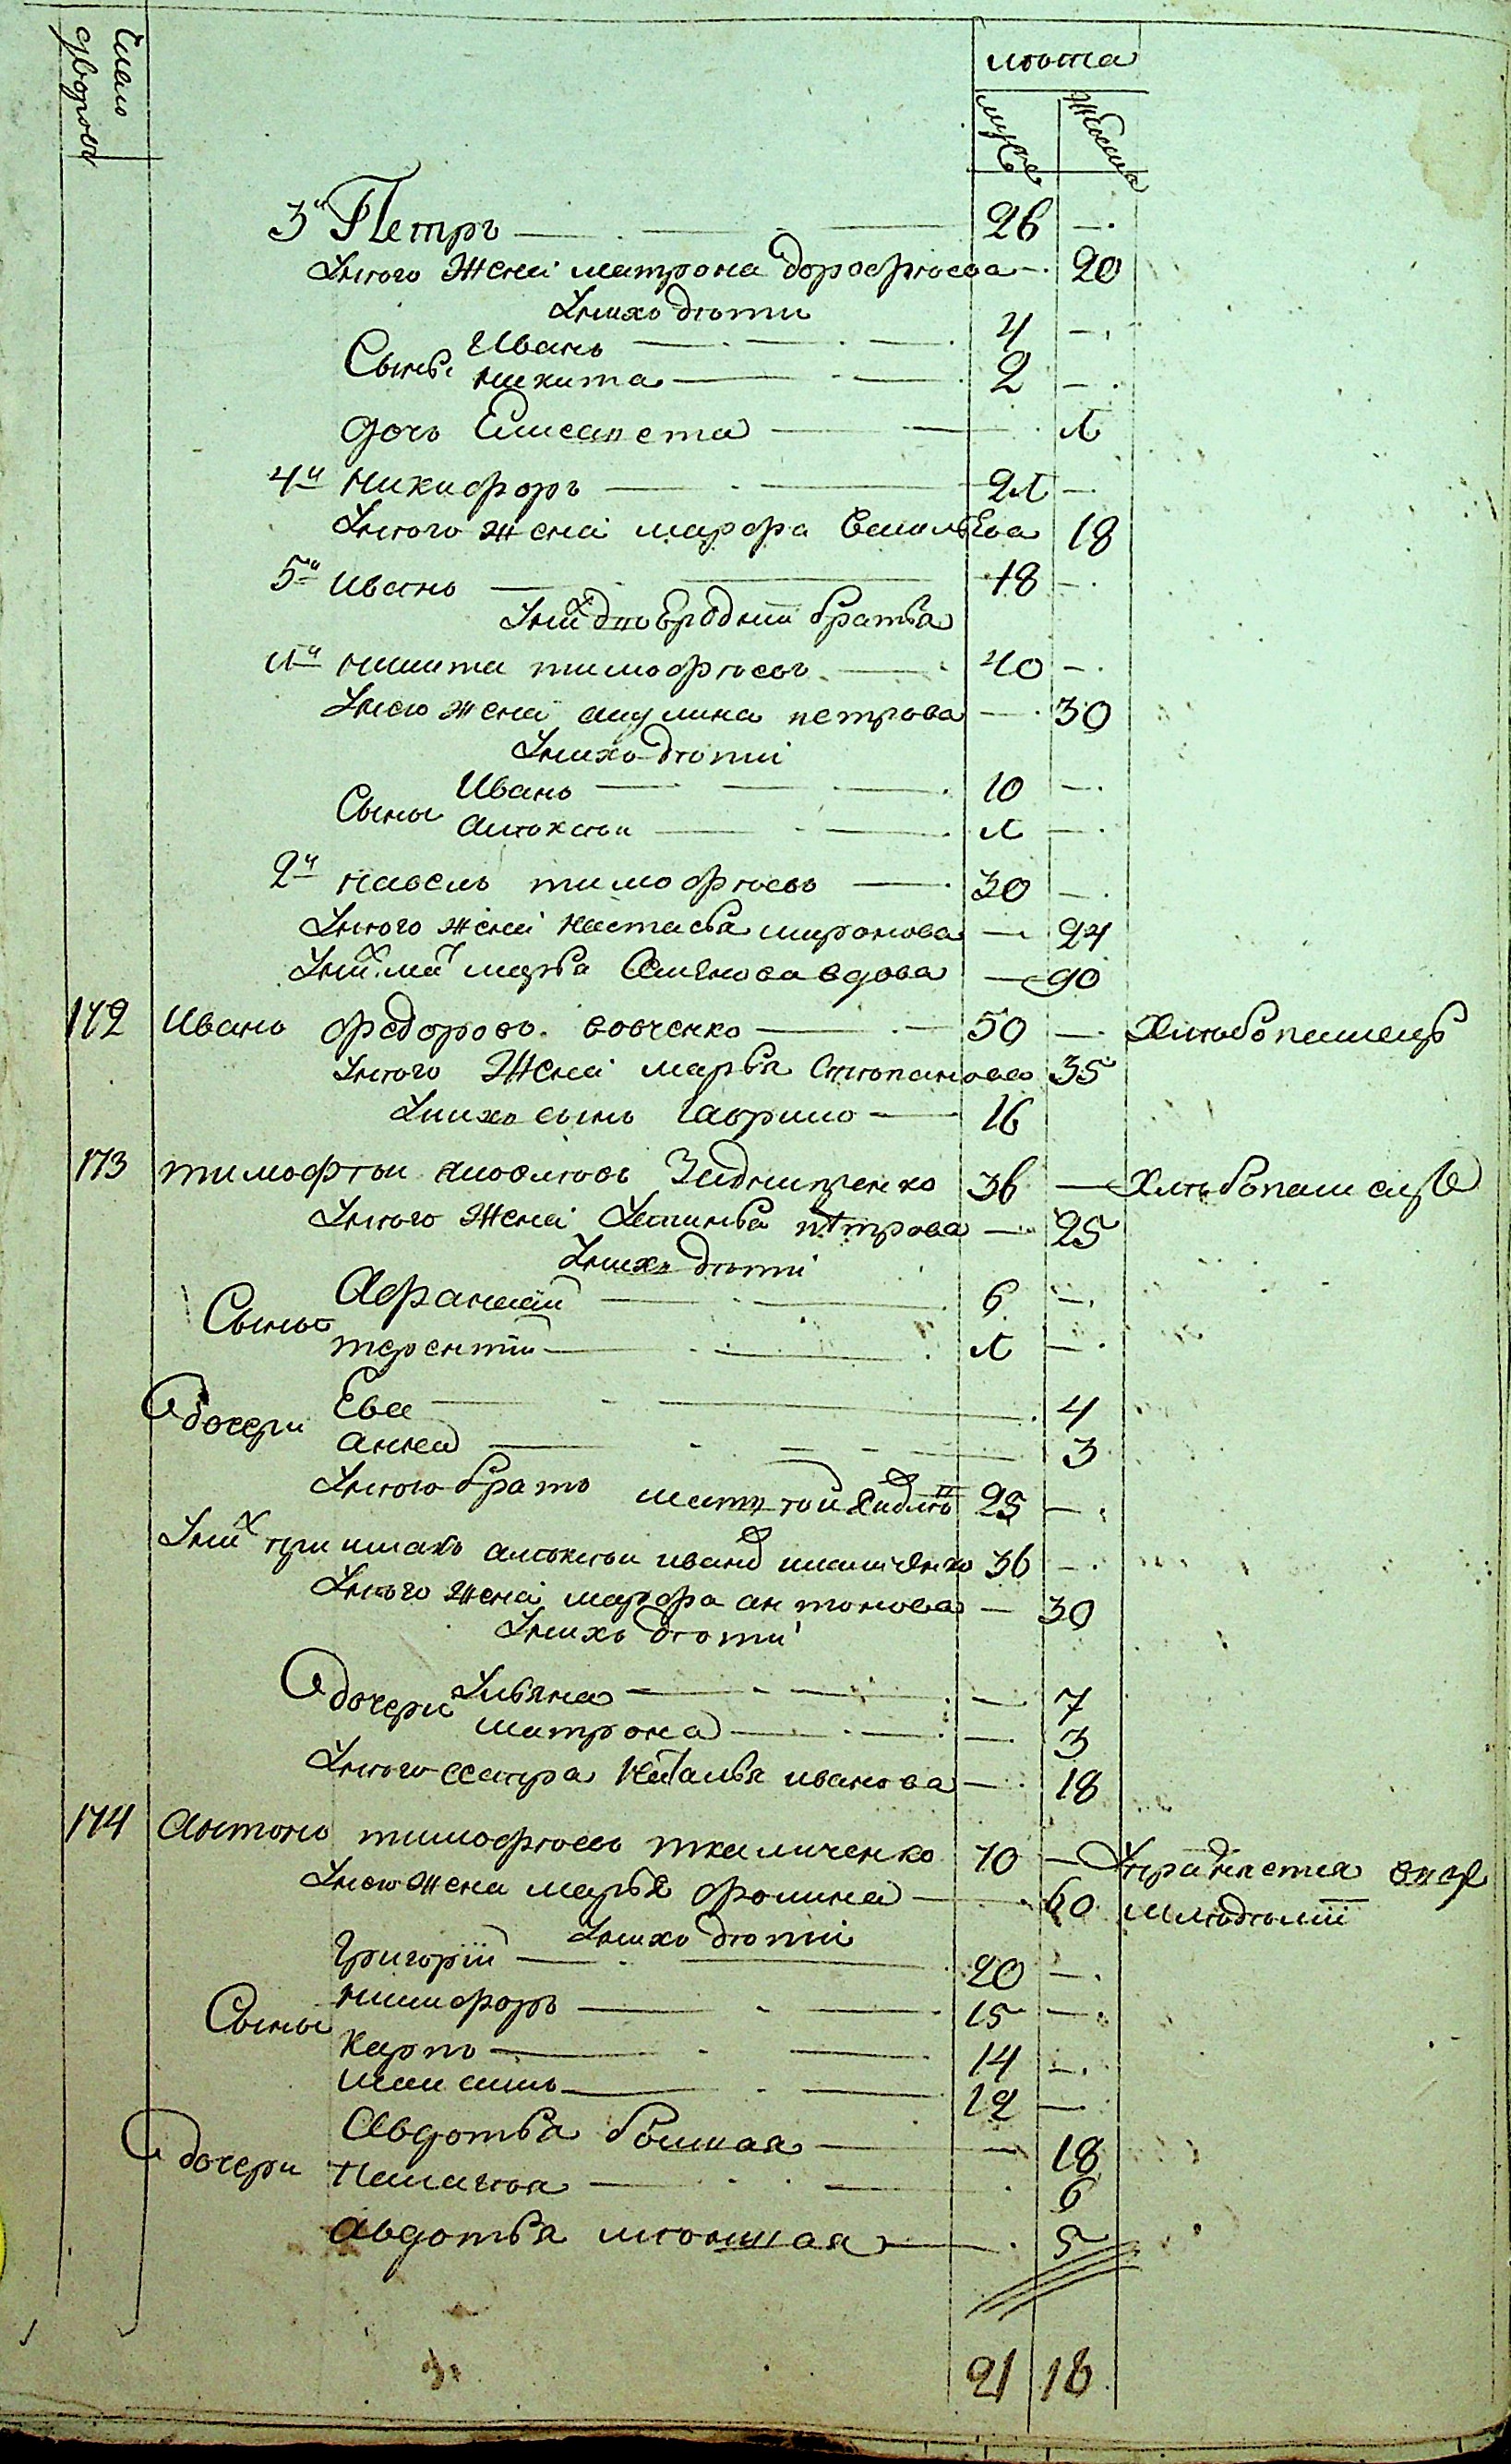 Число дворовъ
лѣта
мужс женска
3й Петръ 26 —
Унего жена матрона дорофѣева — 20
Унихъ дѣти
Сыны Иванъ 4 —
никита 2 —
дочь Елисавета 1
4й Никифоръ 21 —
Унего жена марфа Василева 18
5й иванъ 18 —
 Уних двоеродніи братья
1й никита тимофѣевъ 40 —
Унего жена акулина петрова — 30
Унихъ дѣти
Сыны Иванъ 10 —
алѣксѣи 1 —
2й павелъ тимофѣевъ 30 —
Унего жена настасья миронова — 24
Уних мат марья Семенова вдова — 90
172 Иванъ федоровъ вовченко 50 — Хлѣбопашецъ
Унего жена марья Стѣпанова 35
Унихъ сынъ гаврило 16
173 тимофѣи яковлѣвъ 36 — Хлѣбопашецъ
Унего жена Устинья пѣтрова — 25
Унихъ дѣти
Сыны Афанасіи 6 —
терентіи 1 —
дочери Ева 4
анна 3
Унего братъ матѣѣи 25 —
Уних алѣксѣи иванов 36 —
Унего жена марфа антонова — 30
Унихъ дѣти
дочери Ульяна — 7
матрона — 3
Унего сестра Наталья иванова — 18
174 Антонъ тимофѣевъ ткаличенко 70 — Упражняется
Унего жена марья фомина 60
Унихъ дѣти
Григоріи 20 —
Сыны никифоръ 15 —
карпъ 14 —
12 —
дочери Авдотья болшая — 18
Пелагѣя 6
Авдотья мѣншая 5
21 18